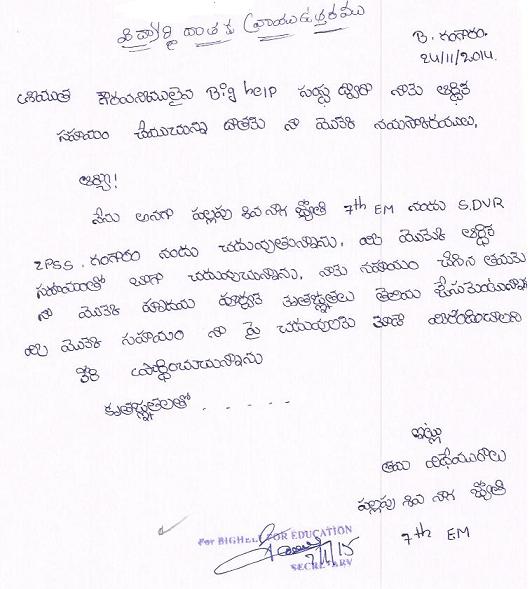 విద్యార్థి దాతకు వ్రాయు ఉత్తరము
B. గంగారం.
24/11/2014.
శ్రీయుత గౌరవనీయులైన Big help సంస్థ ద్వారా నాకు ఆర్థిక
సహాయం చేయుచున్న దాతకు నా యొక్క నమస్కారములు.
ఆర్యా!
నేను అనగా పల్లపు శివ నాగ జ్యోతి 7th EM నందు S.DVR
ZPSS. గంగారం నందు చదువుతున్నాను. మీ యొక్క ఆర్థిక
సహాయంతో బాగా చదువుచున్నాను. నాకు సహాయం చేసిన తమకు
నా యొక్క హృదయ పూర్వక కృతజ్ఞతలు తెలియ చేసుకుంటున్నాను
మీ యొక్క సహాయం నా పై చదువులకు కూడా అందించాలని
కోరి ప్రార్థించుచున్నాను
కృతజ్ఞతలతో . . . . .
ఇట్లు
తమ విధేయురాలు
పల్లపు శివ నాగ జ్యోతి
7th EM
For BIGHELP FOR EDUCATION
7/1/15
SECRETARY